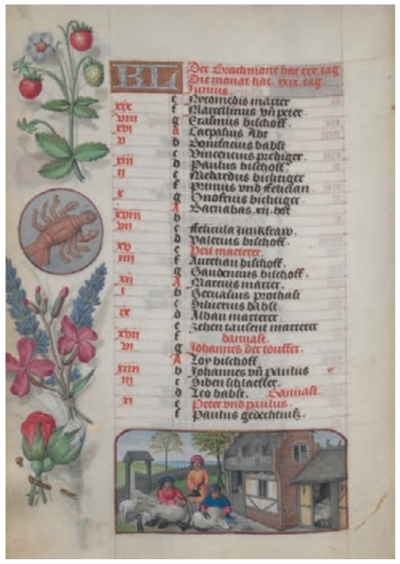 KL Der Brachmont hat xxx tag
Die monat hat xxx tag
Junius
e Nicomedis marter
xix f Marcellinus vñ peter
viii g Erasmus bischoff
xvi A Carpasius Abt
v b Bonifacius babst
c Vincencius prediger
xiii d Paulus bischoff
ii e Medardus bichtiger
f Primus vnd felician
x g Onofrius bichtiger
A Barnabas xii bott
xviii b
vii c
d felicula junkfraw
d Valerius bischoff
xv e Veit marterer
iiii f Aurelian bischoff
g Gaudencius bischoff
xii A Marcus marter
i b Gervasius prothasi
c Silverius babst
ix d Alban marterer
e zehen tausent marterer
xvii f banvast
vi g Johannes der touffer
A Loy bischoff
xiiii b Johannes vñ paulus
iii c Siben schlaeffer
d Leo babst banvast
xi e Peter vnd paulus
f Paulus gedechtnusz